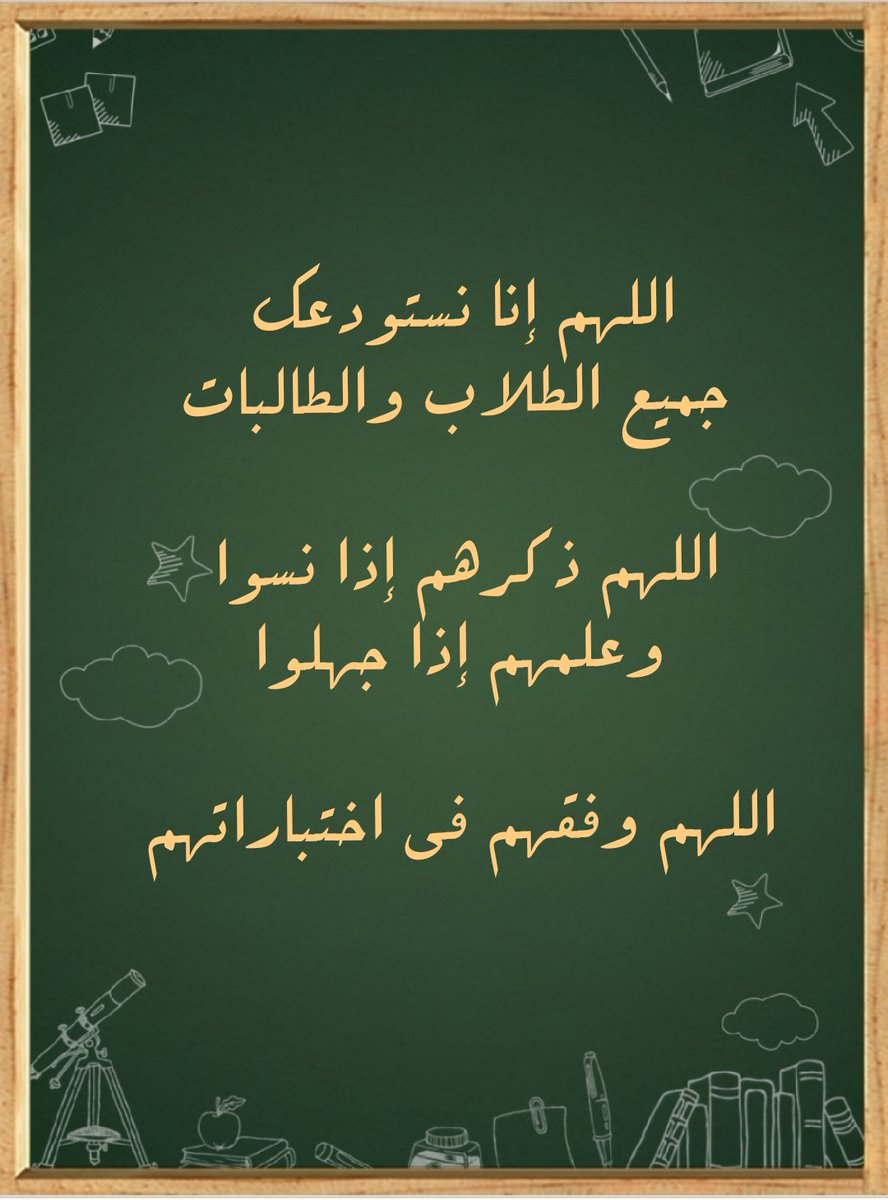 اللهم إنا نستودعك
جميع الطلاب والطالبات
اللهم ذكرهم إذا نسوا
وعلمهم إذا جهلوا
اللهم وفقهم فى اختباراتهم